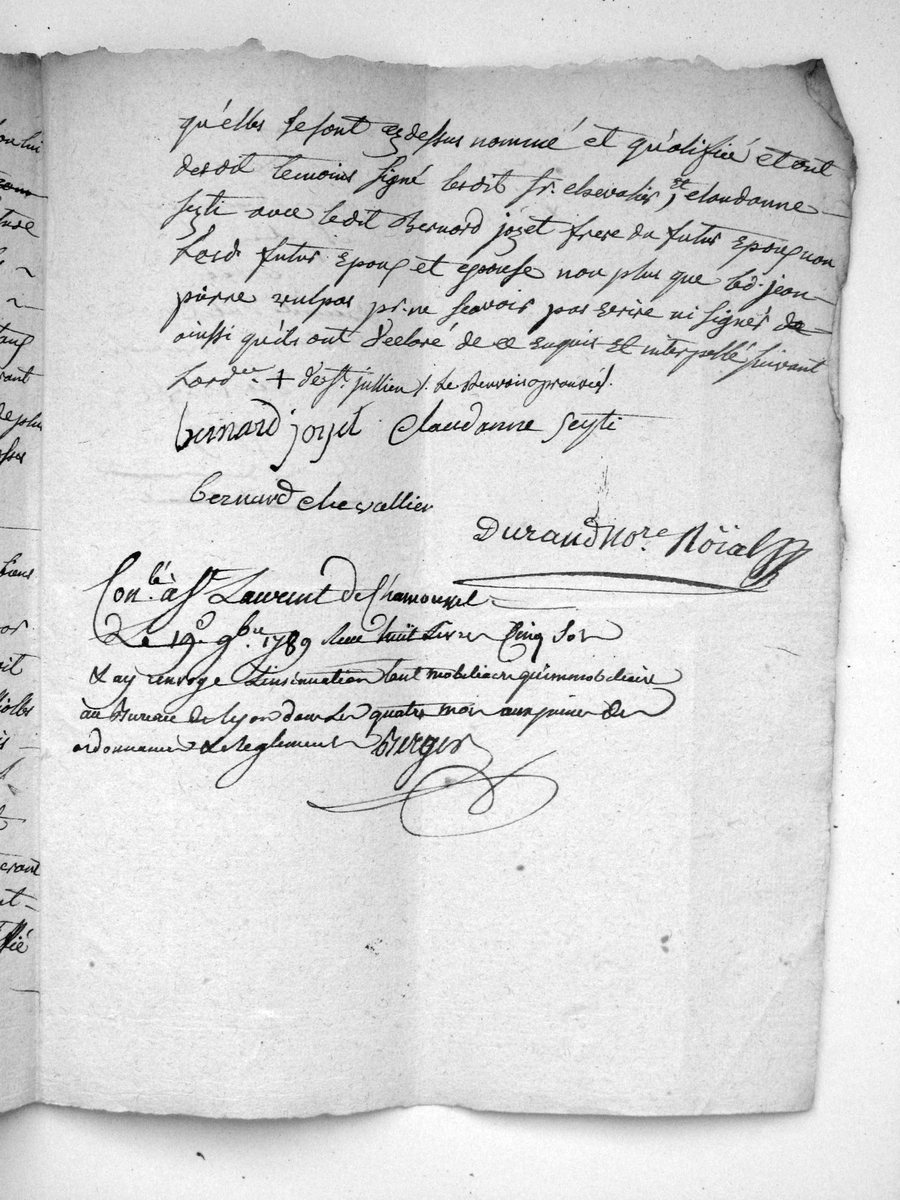 qu'elles se sont cydessus nommé et qualifié et ont
desdit temoins signé ledit sr. chevalier, et claudanne
seyti avec ledit Bernard jozet frere du futur Epoux non
lesd. futur Epoux et epouse non plus que led. jean
pierre vulpas pr. ne scavoir pas ecrire ni signer de
ainsi qu'ils ont declaré de ce enquis et interpellé suivant
Lord.ce + de st. jullien /. le Renvoi aprouvé /.
bernard jozet claudanne seyti
bernard chevallier
Durand No.re Röial
Con.lé à St. Laurent de Chamousset
Le 19.e 9bre 1789 Reçu huit Livres Cinq Sols
& ay renvoyé L'insinuation tant mobiliaire qu'immobiliaire
au Bureau de Lyon dans Les quatre mois aux peines des
ordonnances & Reglements Berger
et ont